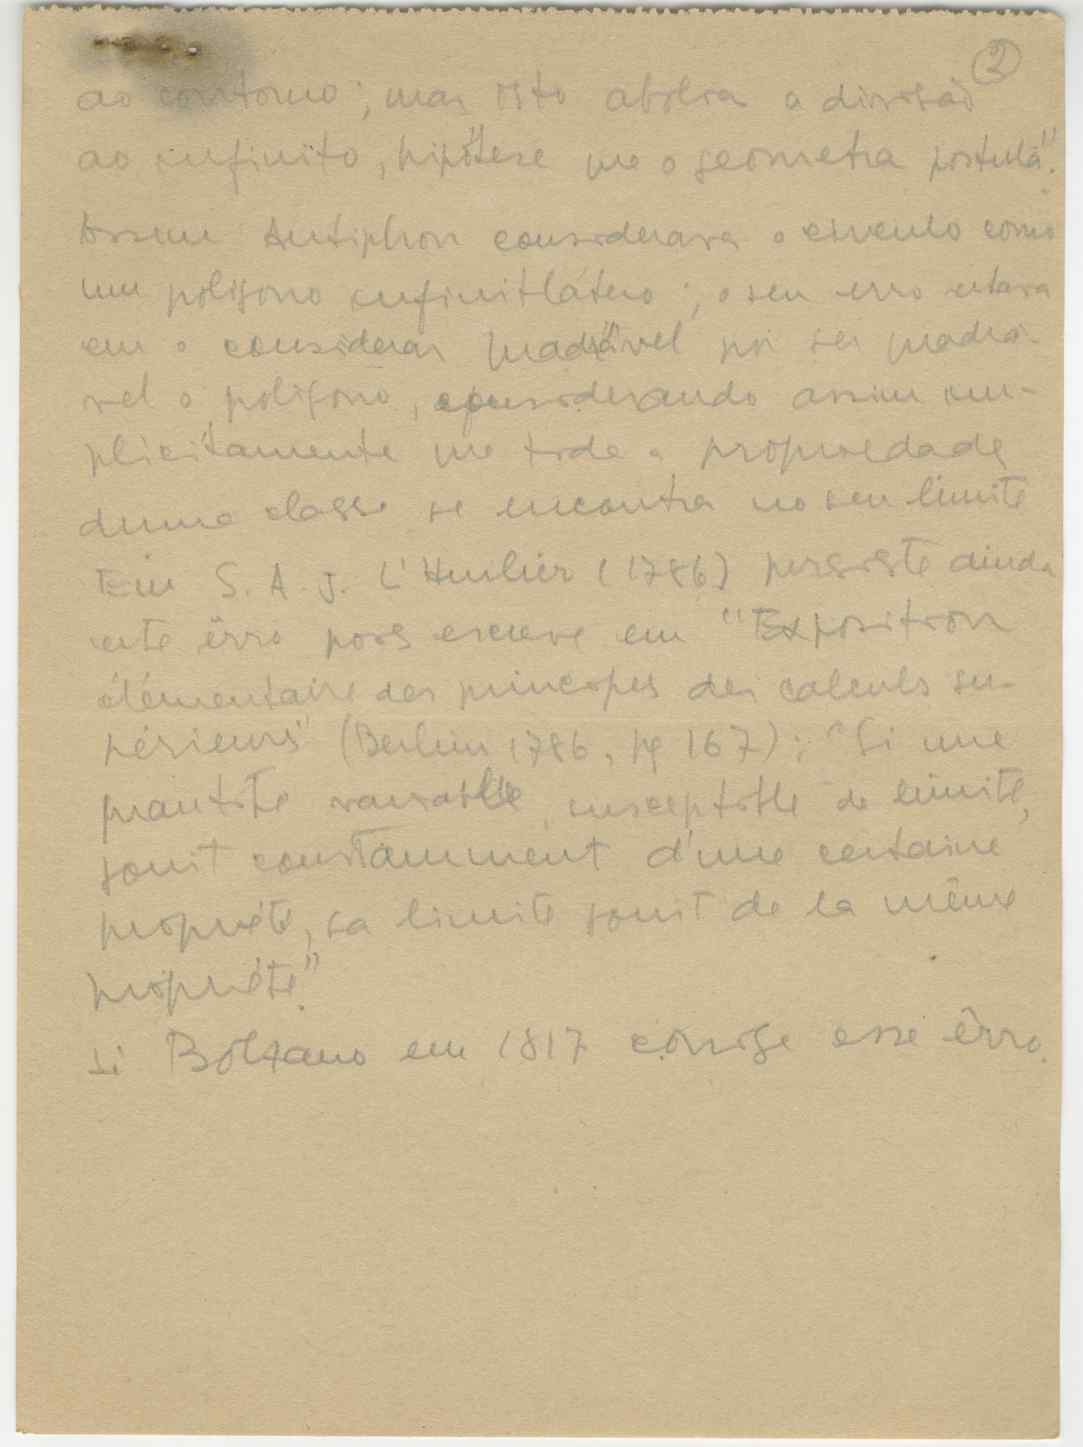 ②
ao contorno; mas isto abolia a divisão
ao infinito, hipótese que o geometra postula".
Assim Antiphon considerava o circulo como
um poligono infinitlátero; o seu erro estava
em o considerar quadrável por ser quadrá-
vel o poligono, considerando assim im-
plicitamente que toda a propriedade
duma classe se encontra no seu limite
Em S. A. J. L'Huilier (1786) persiste ainda
este êrro pois escreve em "Exposition
élémentaire des principes des calculs su-
périeurs" (Berlin 1786, pg 167): "Si une
quantité variable, susceptible de limite,
jouit constamment d'une certaine
propriété, sa limite jouit de la même
propriété."
Só Bolzano em 1817 corrige esse êrro.